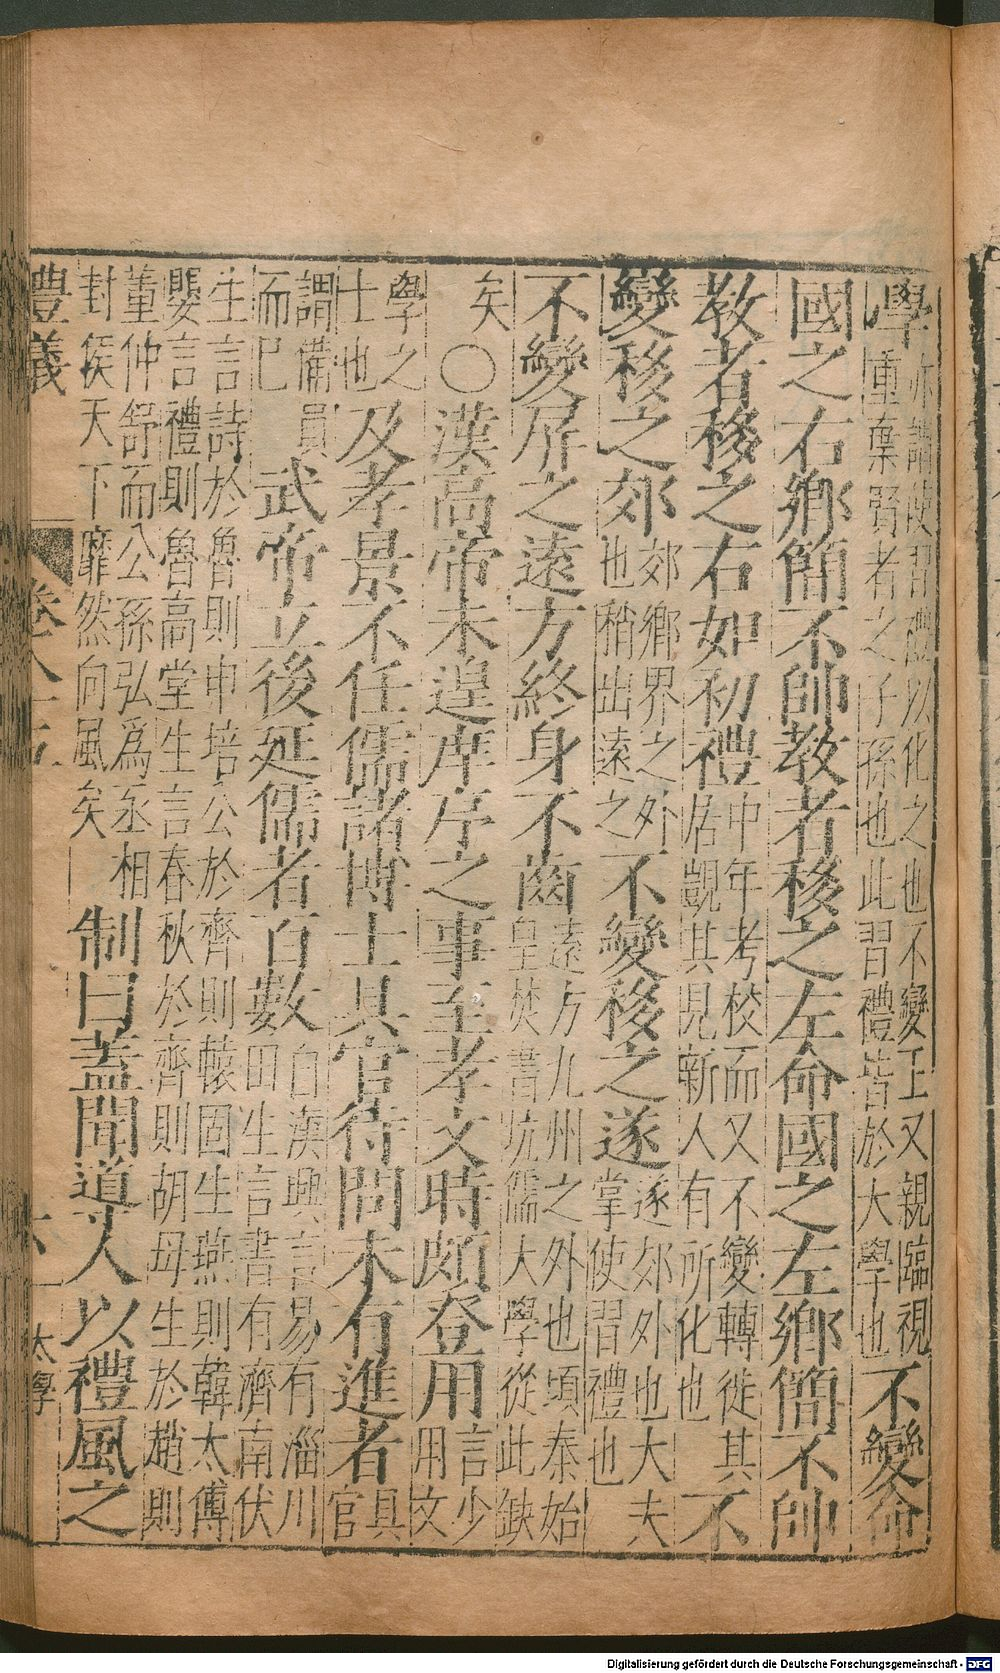 學亦謂使習禮以化之也不變王又親臨視重棄賢者之子孫也此習禮皆於大學也不變命
國之右鄉簡不帥教者移之左命國之左鄉簡不帥
教者移之右如初禮中年考校而又不變轉徙其居覬其見新人有所化也不
變移之郊郊鄉界之外也稍出遠之不變移之遂遂郊外也大夫掌使習禮也
不變屏之遠方終身不齒遠方九州之外也頃秦始皇焚書坑儒大學從此缺
矣〇漢高帝未遑庠序之事至孝文時頗登用言少用文
學之士也及孝景不任儒諸博士具官待問未有進者具官
謂備員而已武帝立後延儒者百數自漢興言易有淄川田生言書有濟南伏
生言詩於魯則申培公於齊則轅固生燕則韓太傅嬰言禮則魯高堂生言春秋於齊則胡母生於趙則
董仲舒而公孫弘爲丞相封侯天下靡然向風矣制曰蓋聞導人以禮風之
禮儀 卷 六 太學
Digitalisierung gefördert durch die Deutsche Forschungsgemeinschaft - DFG